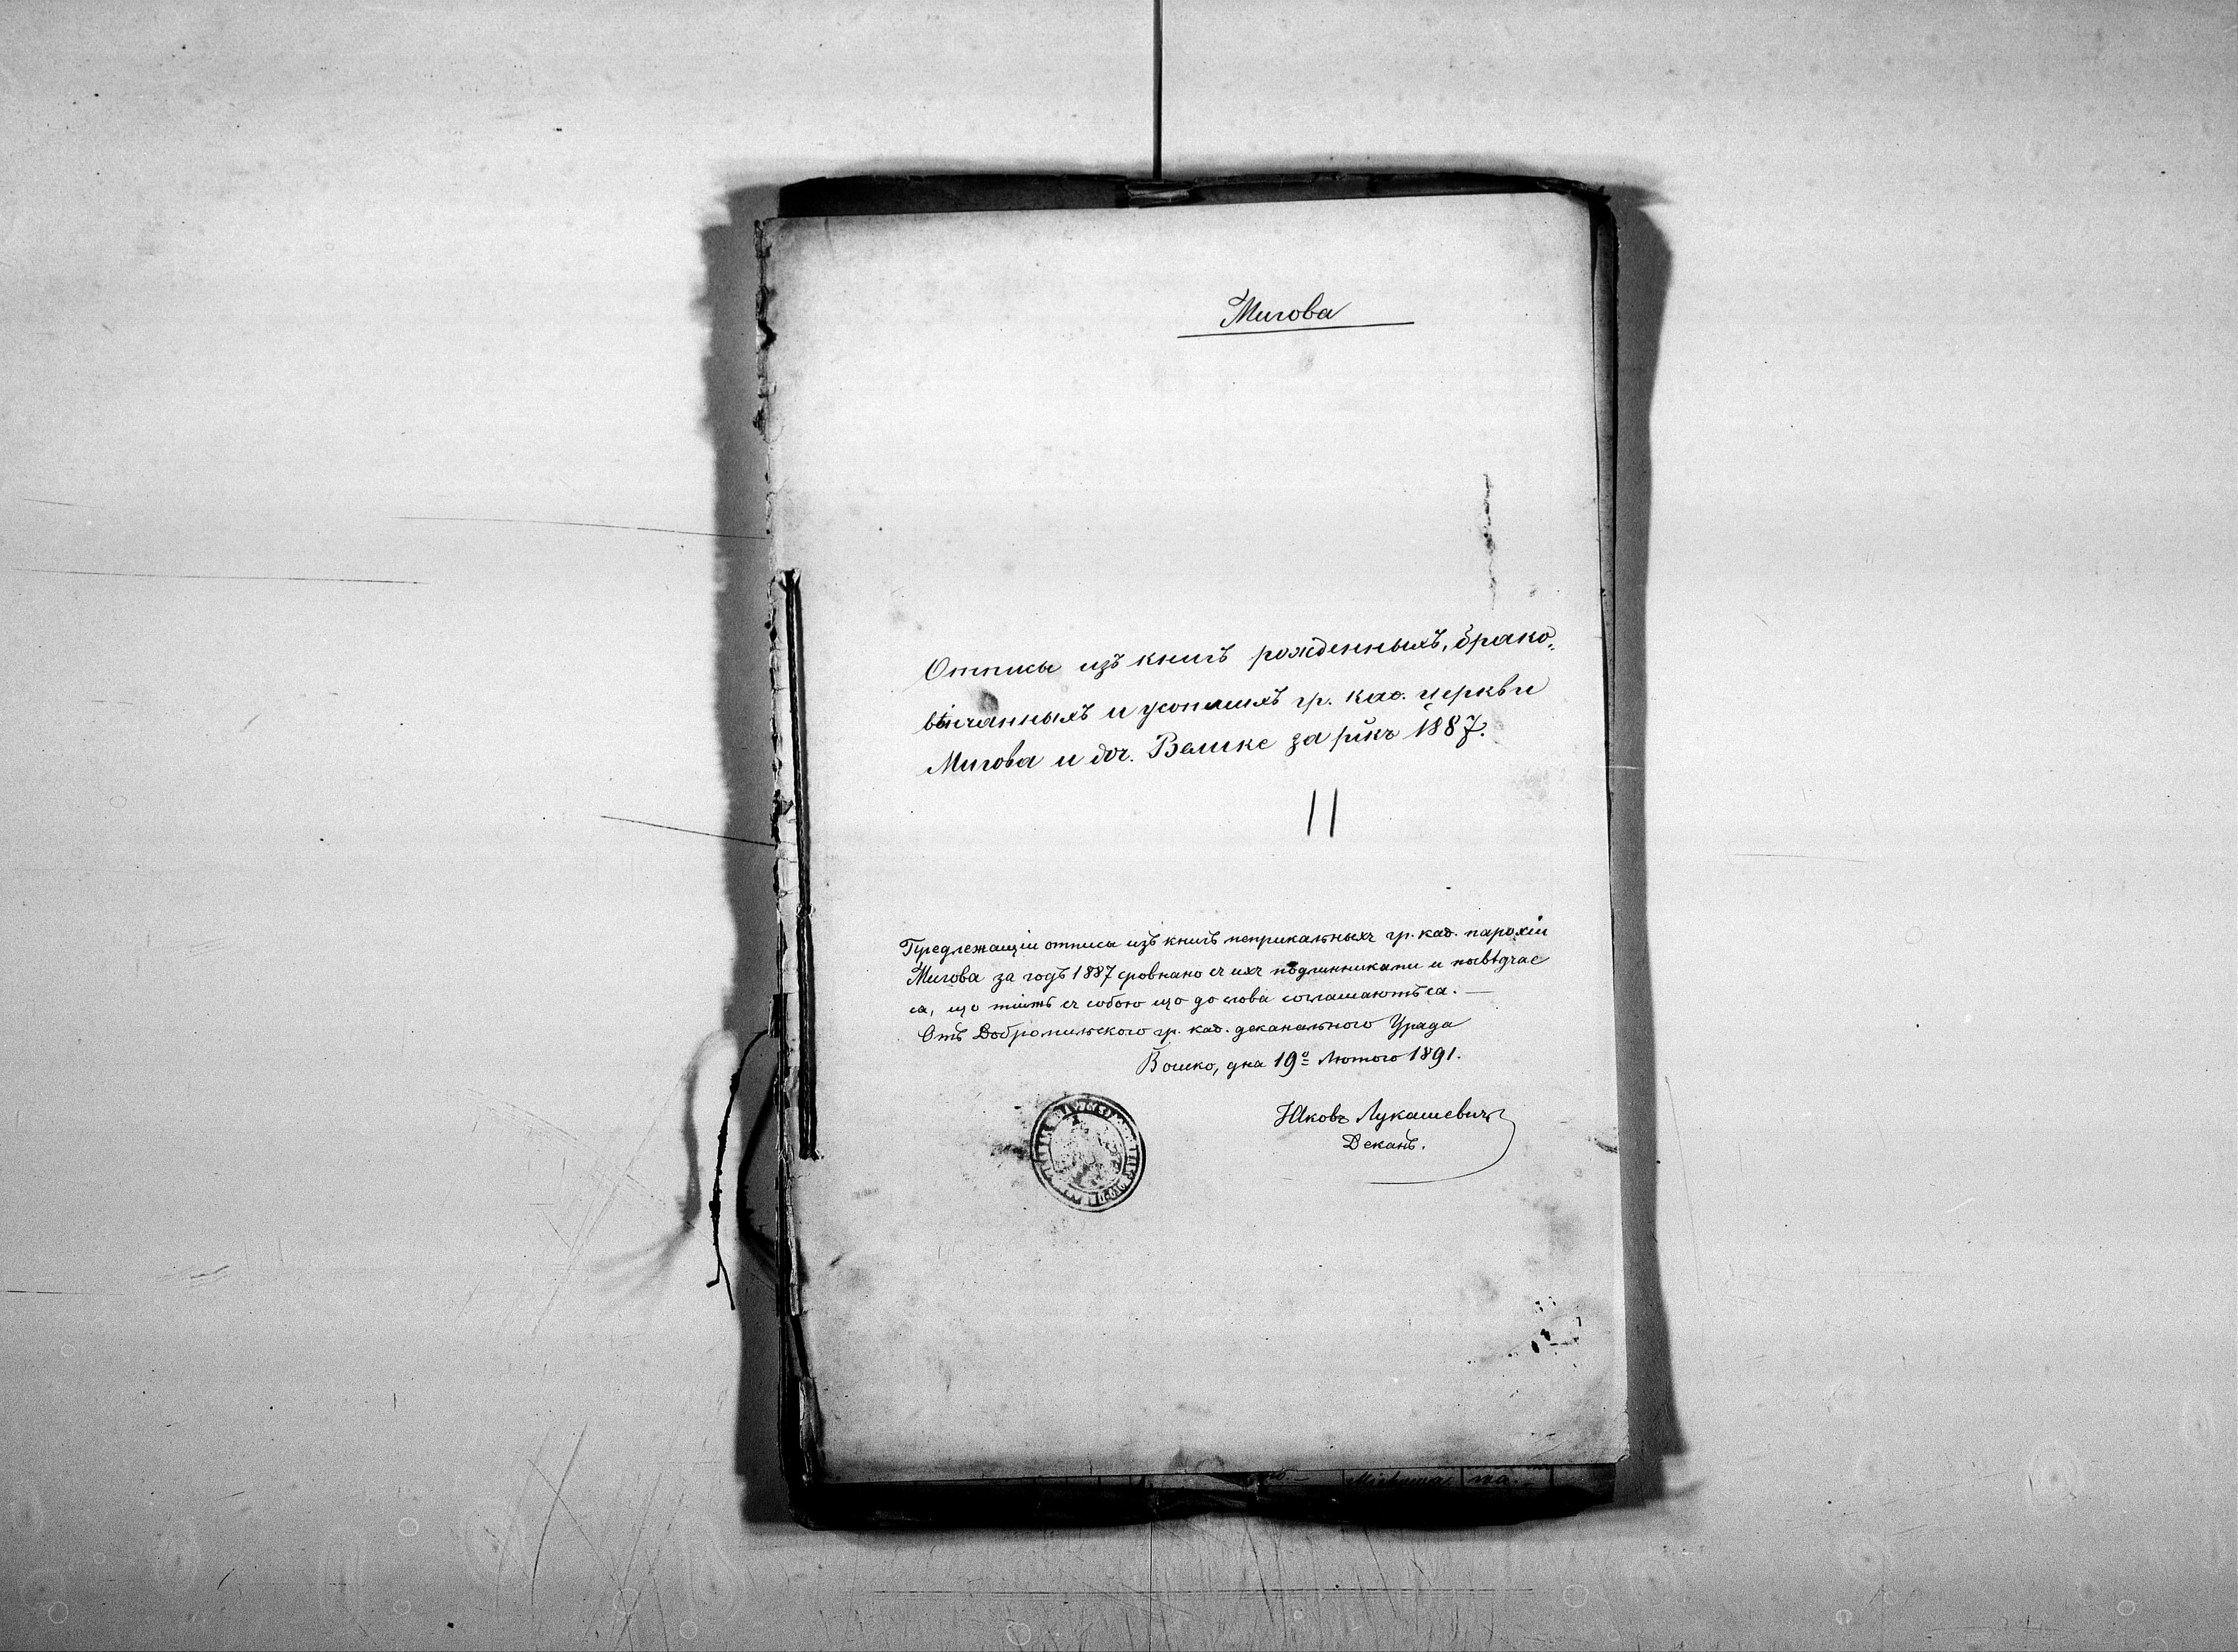 Мигова
Отписы изъ книгъ рожденныхъ, брако„
вѣнчанныхъ и усопшихъ гр. каѳ. церкви
Мигова и доч. Велике за рôкъ 1887.
Предлежащіи отписы изъ книгъ метрикальныхъ гр. каѳ. парохіи
Мигова за годъ 1887 сровнано съ ихъ подлинниками и посвѣдчае
са, що тіиже съ собою що до слова соглашаютьса. —
Отъ Добромильского гр. каѳ. деканального Уряда
дна 19º Лютого 1891.
Яковъ Лукашевичъ
Деканъ.
Michowa